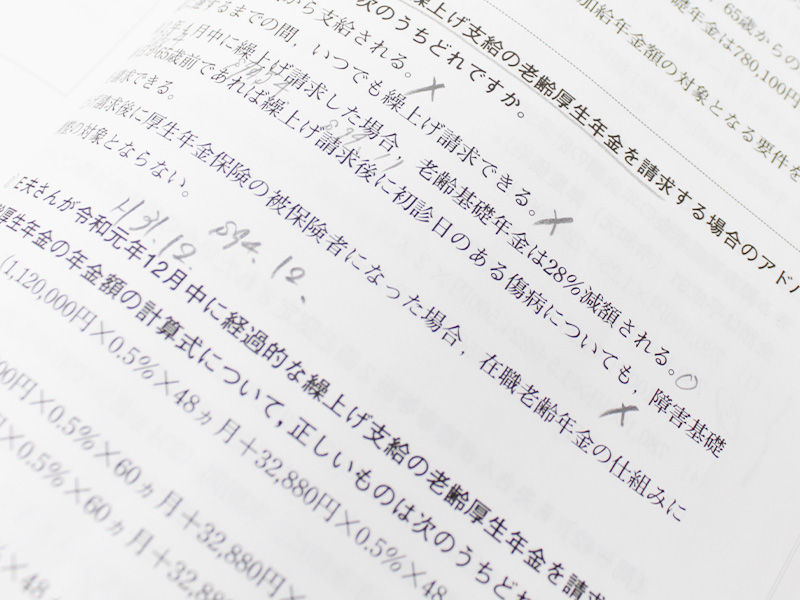 65歳からの
基礎年金は780,100円
加給年金額の対象となる要件を
繰上げ支給の老齢厚生年金を請求する場合のアド
次のうちどれですか。
から支給される。×
するまでの間，いつでも繰上げ請求できる。×
月中に繰上げ請求した場合，老齢基礎年金は28%減額される。○
65歳前であれば繰上げ請求後に初診日のある傷病についても，障害基礎
請求できる。
請求後に厚生年金保険の被保険者になった場合，在職老齢年金の仕組みに
の対象とならない。
×
S94.12.
H31.12.
夫さんが令和元年12月中に経過的な繰上げ支給の老齢厚生年金を請求
厚生年金の年金額の計算式について，正しいものは次のうちどれ
(1,120,000円×0.5%×48ヵ月＋32,880円×0.5%×48
00円×0.5%×60ヵ月＋32,880円×
×0.5%×60ヵ月＋32,88
×48